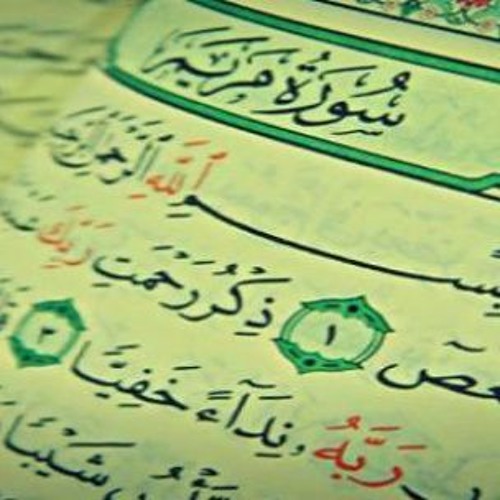 سُورَةُ مَرْيَمَ
بِسْمِ ٱللَّهِ ٱلرَّحْمَٰنِ
ذِكْرُ رَحْمَتِ رَبِّكَ ١
رَبَّهُۥ نِدَآءً خَفِيًّا ٣
شَيْبًا